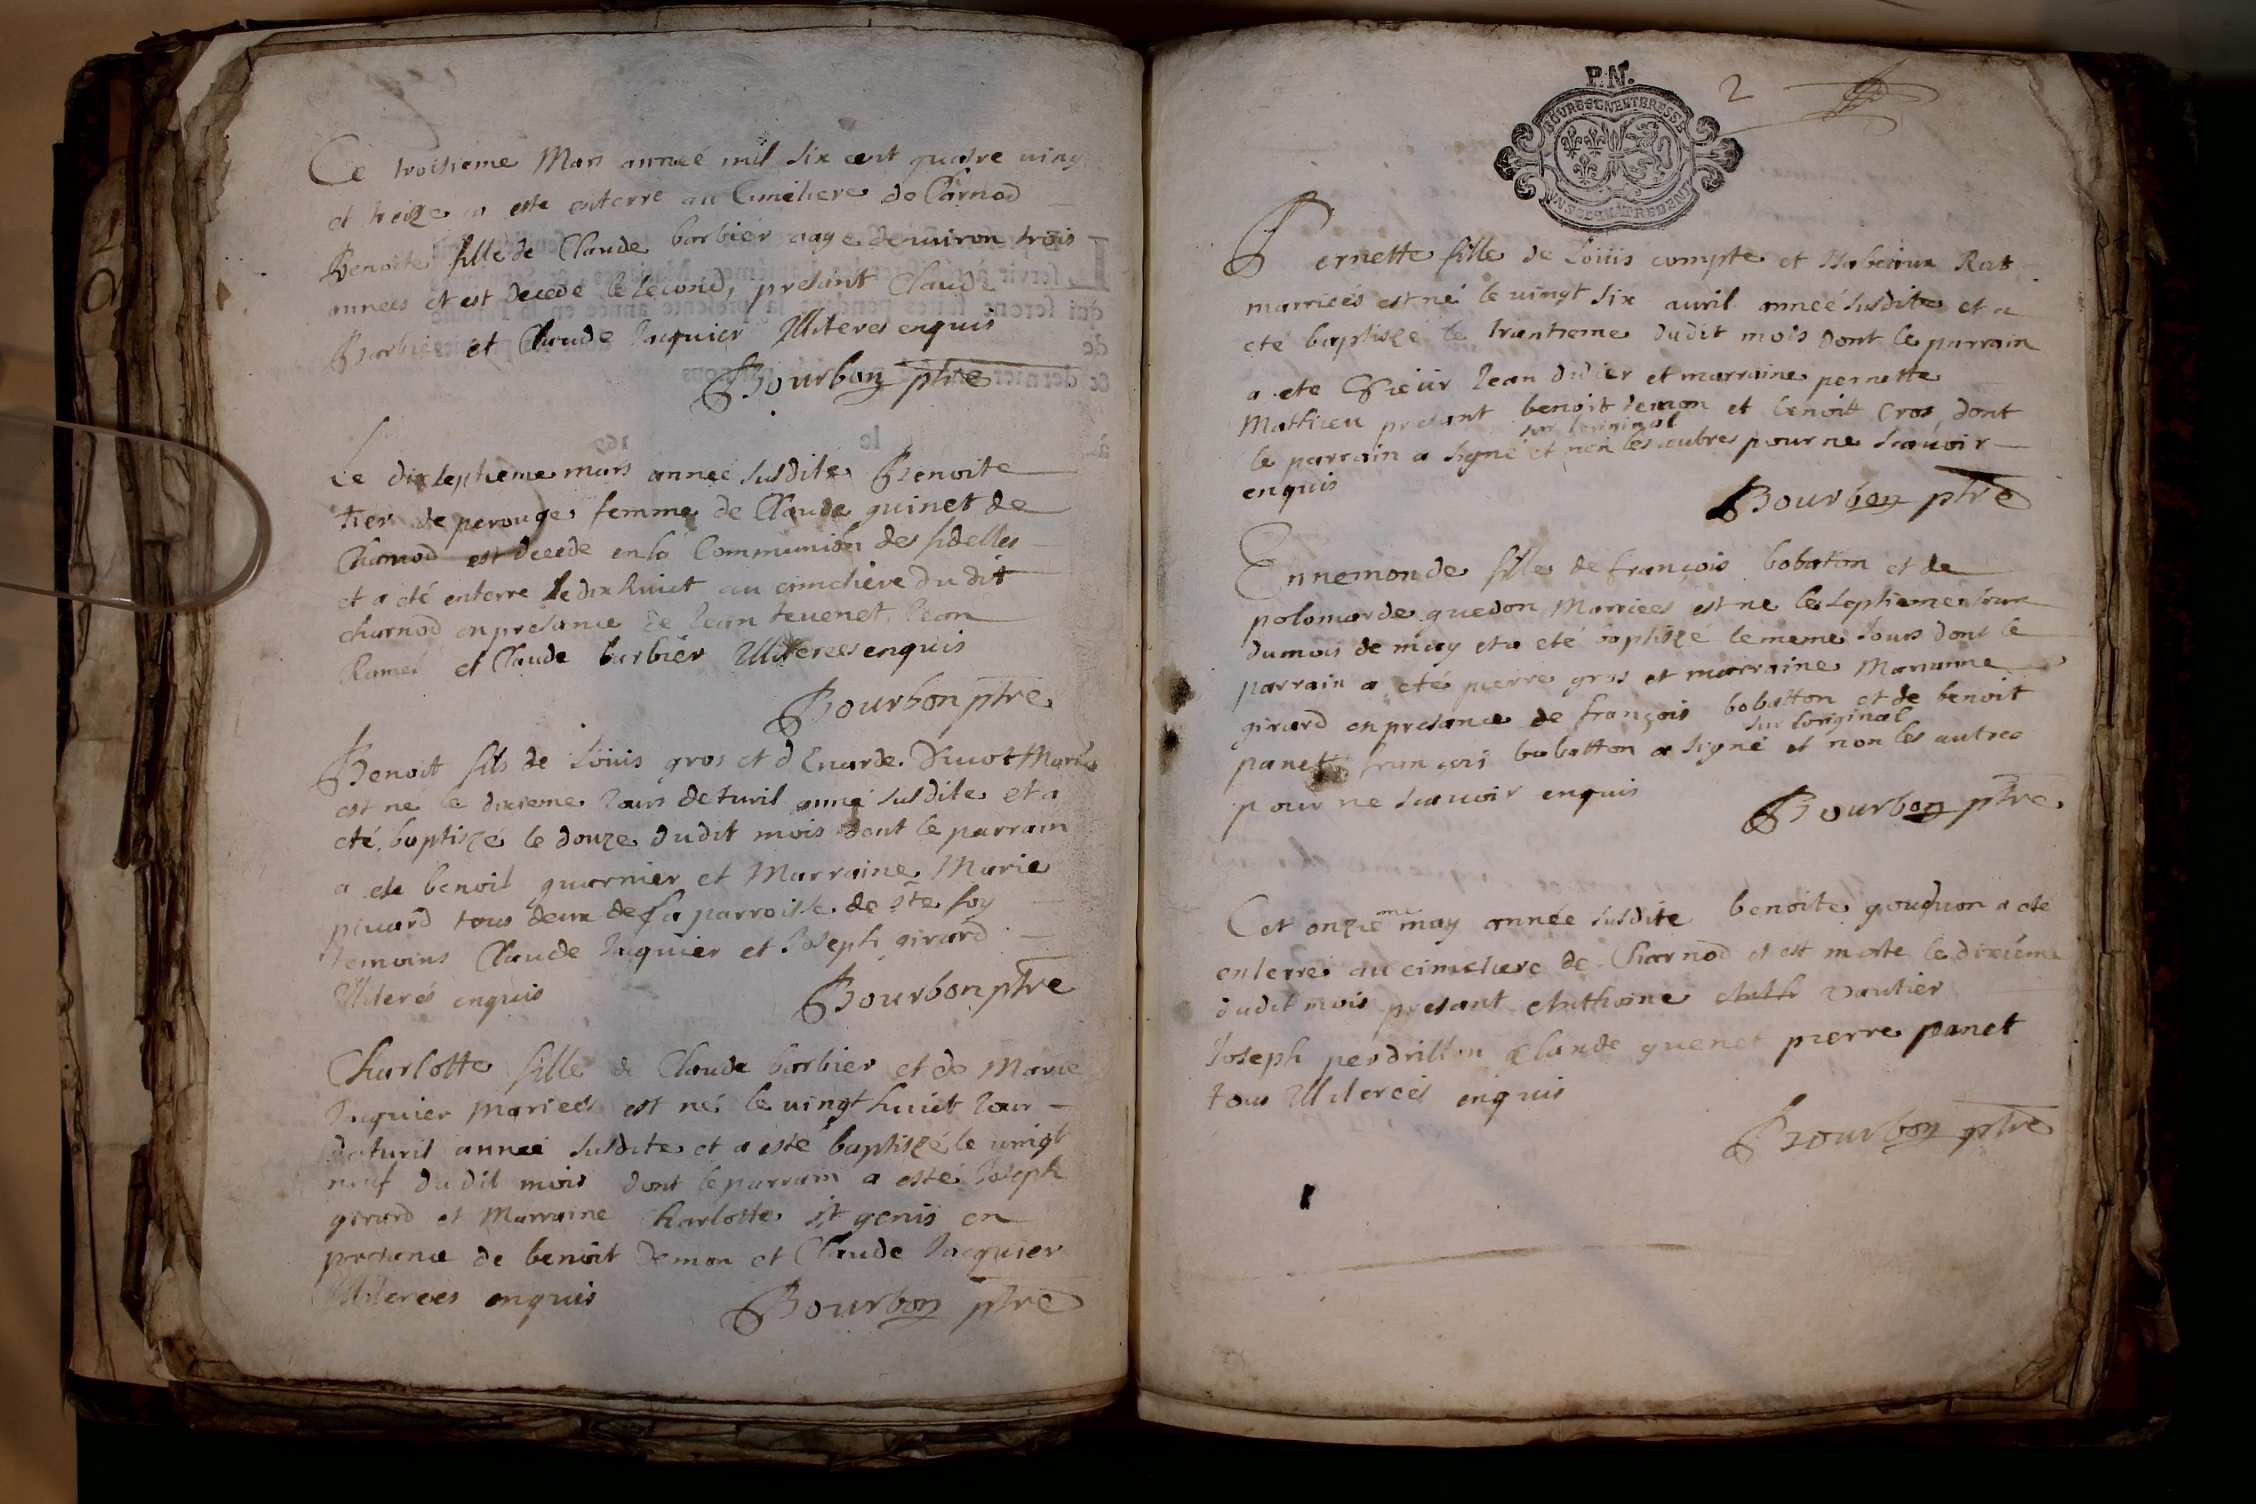 Ce troisieme Mars anneé mil six cent quatre ving
et treize a este enterre au Cimetiere de Charnod
Benoite fille de Claude barbier aage denuiron trois
anneés et est decede le second, presant Claude
Barbier et Claude Jaquier Illiteres enquis
Bourbon ptre
Le dixseptieme mars annee susdite Benoite
tier de perouge femme de Claude guinet de
Charnod est decede en la Communion des fidelles
et a eté enterre le dix huict au cimetiere du dit
charnod en presance de Jean teuenet, Jean
Ramel et Claude barbier Illiterees enquis
Bourbon ptre
Benoitt fils de Loüis gros et d Enarde
est né le dixieme Jours deturil anné susdite et a
eté baptiszé le douze dudit mois dont le parrain
a ete benoit guarnier et Marraine Marie
piuard tous deux de la parroisse de ste foy
temoins Claude Jaquier et Joseph girard
Illiterés enquis
Bourbon ptre
Charlotte fille de Claude barbier et de Marie
Jaquier Mariees est né le uingt huict Jour
deturil anneé susdite et a esté baptiszé le uingt
neuf dudit mois dont le parrain a esté Joseph
girard et Marraine Charlotte st genis en
presance de benoit demon et Claude Jacquier
Illiterees enquis
Bourbon ptre
P.N.
2
Pernette fille de Loüis compte et Rat
marrieés est né le uingt six auril anneé susdite et a
eté baptiszé le trantieme dudit mois dont le parrain
a ete Sieur Jean didier et marraine pernette
Mathieu presant benoit demon et benoitt Cros dont
sur loriginal
le parrain a signé et non les autres pour ne scauoir
enquis
Bourbon ptre
Ennemonde fille de françois bobatton et de
guedon Marriees est ne le septieme Jour
du mois de may et a eté baptiszé le meme Jours dont le
parrain a eté pierre gros et marraine Marianne
girard en presance de françois bobatton et de benoit
sur loriginal
panet françois bobatton a signé et non les autres
pour ne scauoir enquis
Bourbon ptre
Cet onzieme may année susdite benoite gouguon a eté
enterré au cimetiere de Charnod et est morte le dixieme
dudit mois presant Anthoine Vautier
Joseph perdrillon Claude guenet pierre panet
tous Illiterees enquis
Bourbon ptre